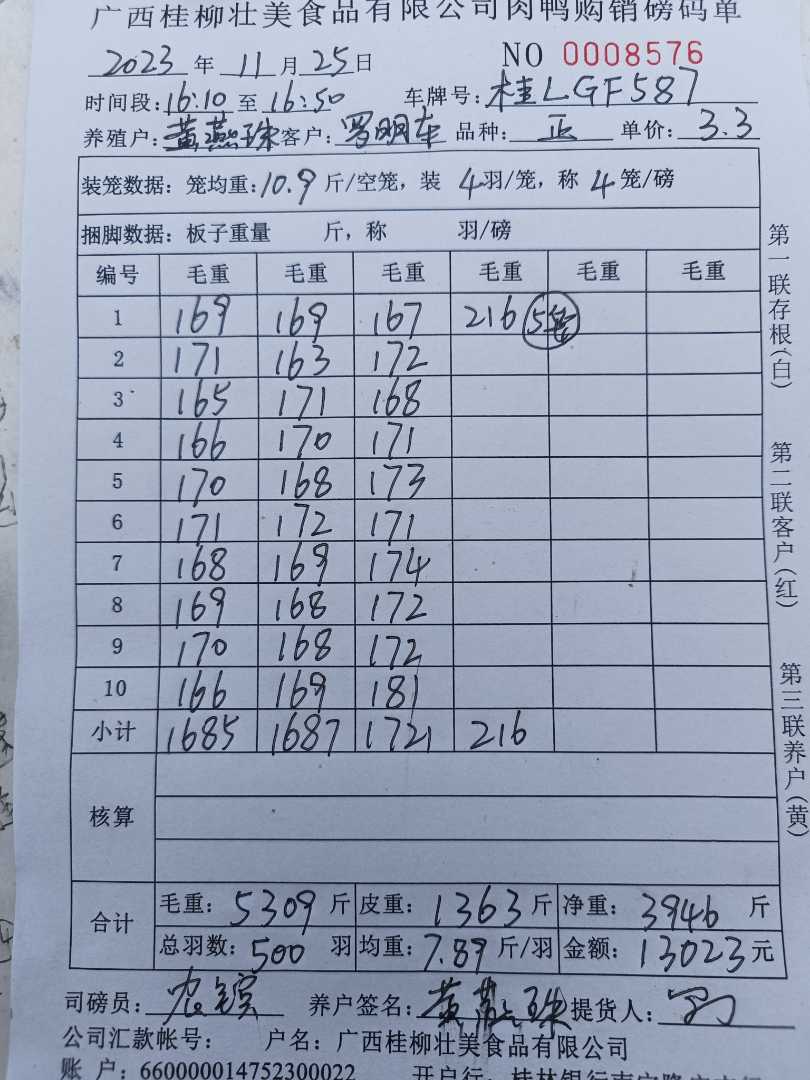 广西桂柳壮美食品有限公司肉鸭购销磅码单
2023 年 11 月 25 日 NO 0008576
时间段: 16:10 至 16:50 车牌号: 桂LGF587
养殖户: 黄燕珠 客户: 罗明车 品种: 正 单价: 3.3
装笼数据: 笼均重: 10.9 斤/空笼, 装 4 羽/笼, 称 4 笼/磅
捆脚数据: 板子重量 斤, 称 羽/磅
编号 毛重 毛重 毛重 毛重 毛重 毛重
1 169 169 167 216 5笼
2 171 163 172
3 165 171 168
4 166 170 171
5 170 168 173
6 171 172 171
7 168 169 174
8 169 168 172
9 170 168 172
10 166 169 181
小计 1685 1687 1721 216
核算
合计 毛重: 5309 斤 皮重: 1363 斤 净重: 3946 斤
总羽数: 500 羽 均重: 7.89 斤/羽 金额: 13023 元
司磅员: 养户签名: 黄燕珠 提货人:
公司汇款帐号: 户名: 广西桂柳壮美食品有限公司
账 户: 660000014752300022 开户行: 桂林银行南宁隆安支行
第一联存根(白)
第二联客户(红)
第三联养户(黄)